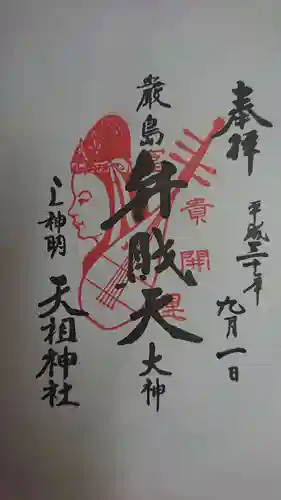 奉拝
平成三十年
九月一日
厳島
弁財天
大神
上神明
天祖神社
貴
開